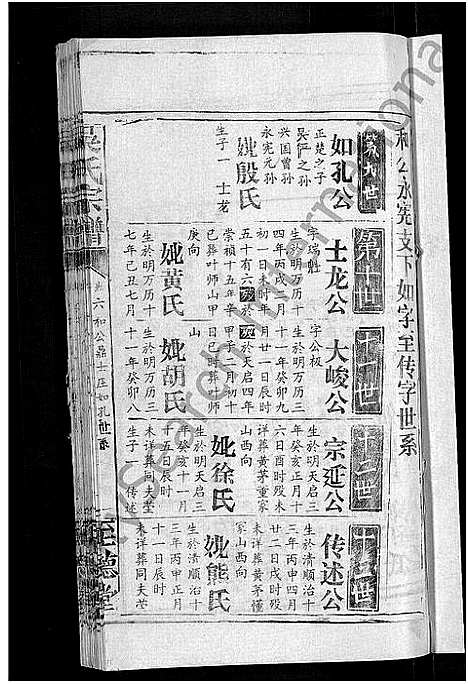 和公永宪支下如字至传字世系
第九世
如孔公
正楚之子
吴俨之孙
兴国曾孙
永宪元孙
妣殷氏
生子一 士龙
第十世
士龙公
字瑞魁
生於明万历十
四年丙戌二月
初一日未时
五十有六殁於
崇祯十五年
已葬叶师山甲
庚向
妣黄氏
生於明万历十
七年己丑七月
十一世
大峻公
字公极
生於明万历三
十一年癸卯九
月廿一日辰时
殁於天启四年
甲子二月初十
日巳时葬叶师
山
妣胡氏
生於明万历三
十一年癸卯八
十二世
宗延公
生於明天启三
年癸亥正月十
六日酉时殁未
详葬黄茅董家
山西向
妣徐氏
生於明天启三
年癸亥十一月
十五日辰时
未详葬同夫茔
生子一 传述
十三世
传述公
生於清顺治十
三年丙申四月
廿二日戌时殁
未详葬黄茅懂
家山西向
妣熊氏
生於清顺治十
三年丙申正月
十一日辰时
未详葬同夫茔
吴氏宗谱
卷六和公鼎士压如孔世系
至德堂